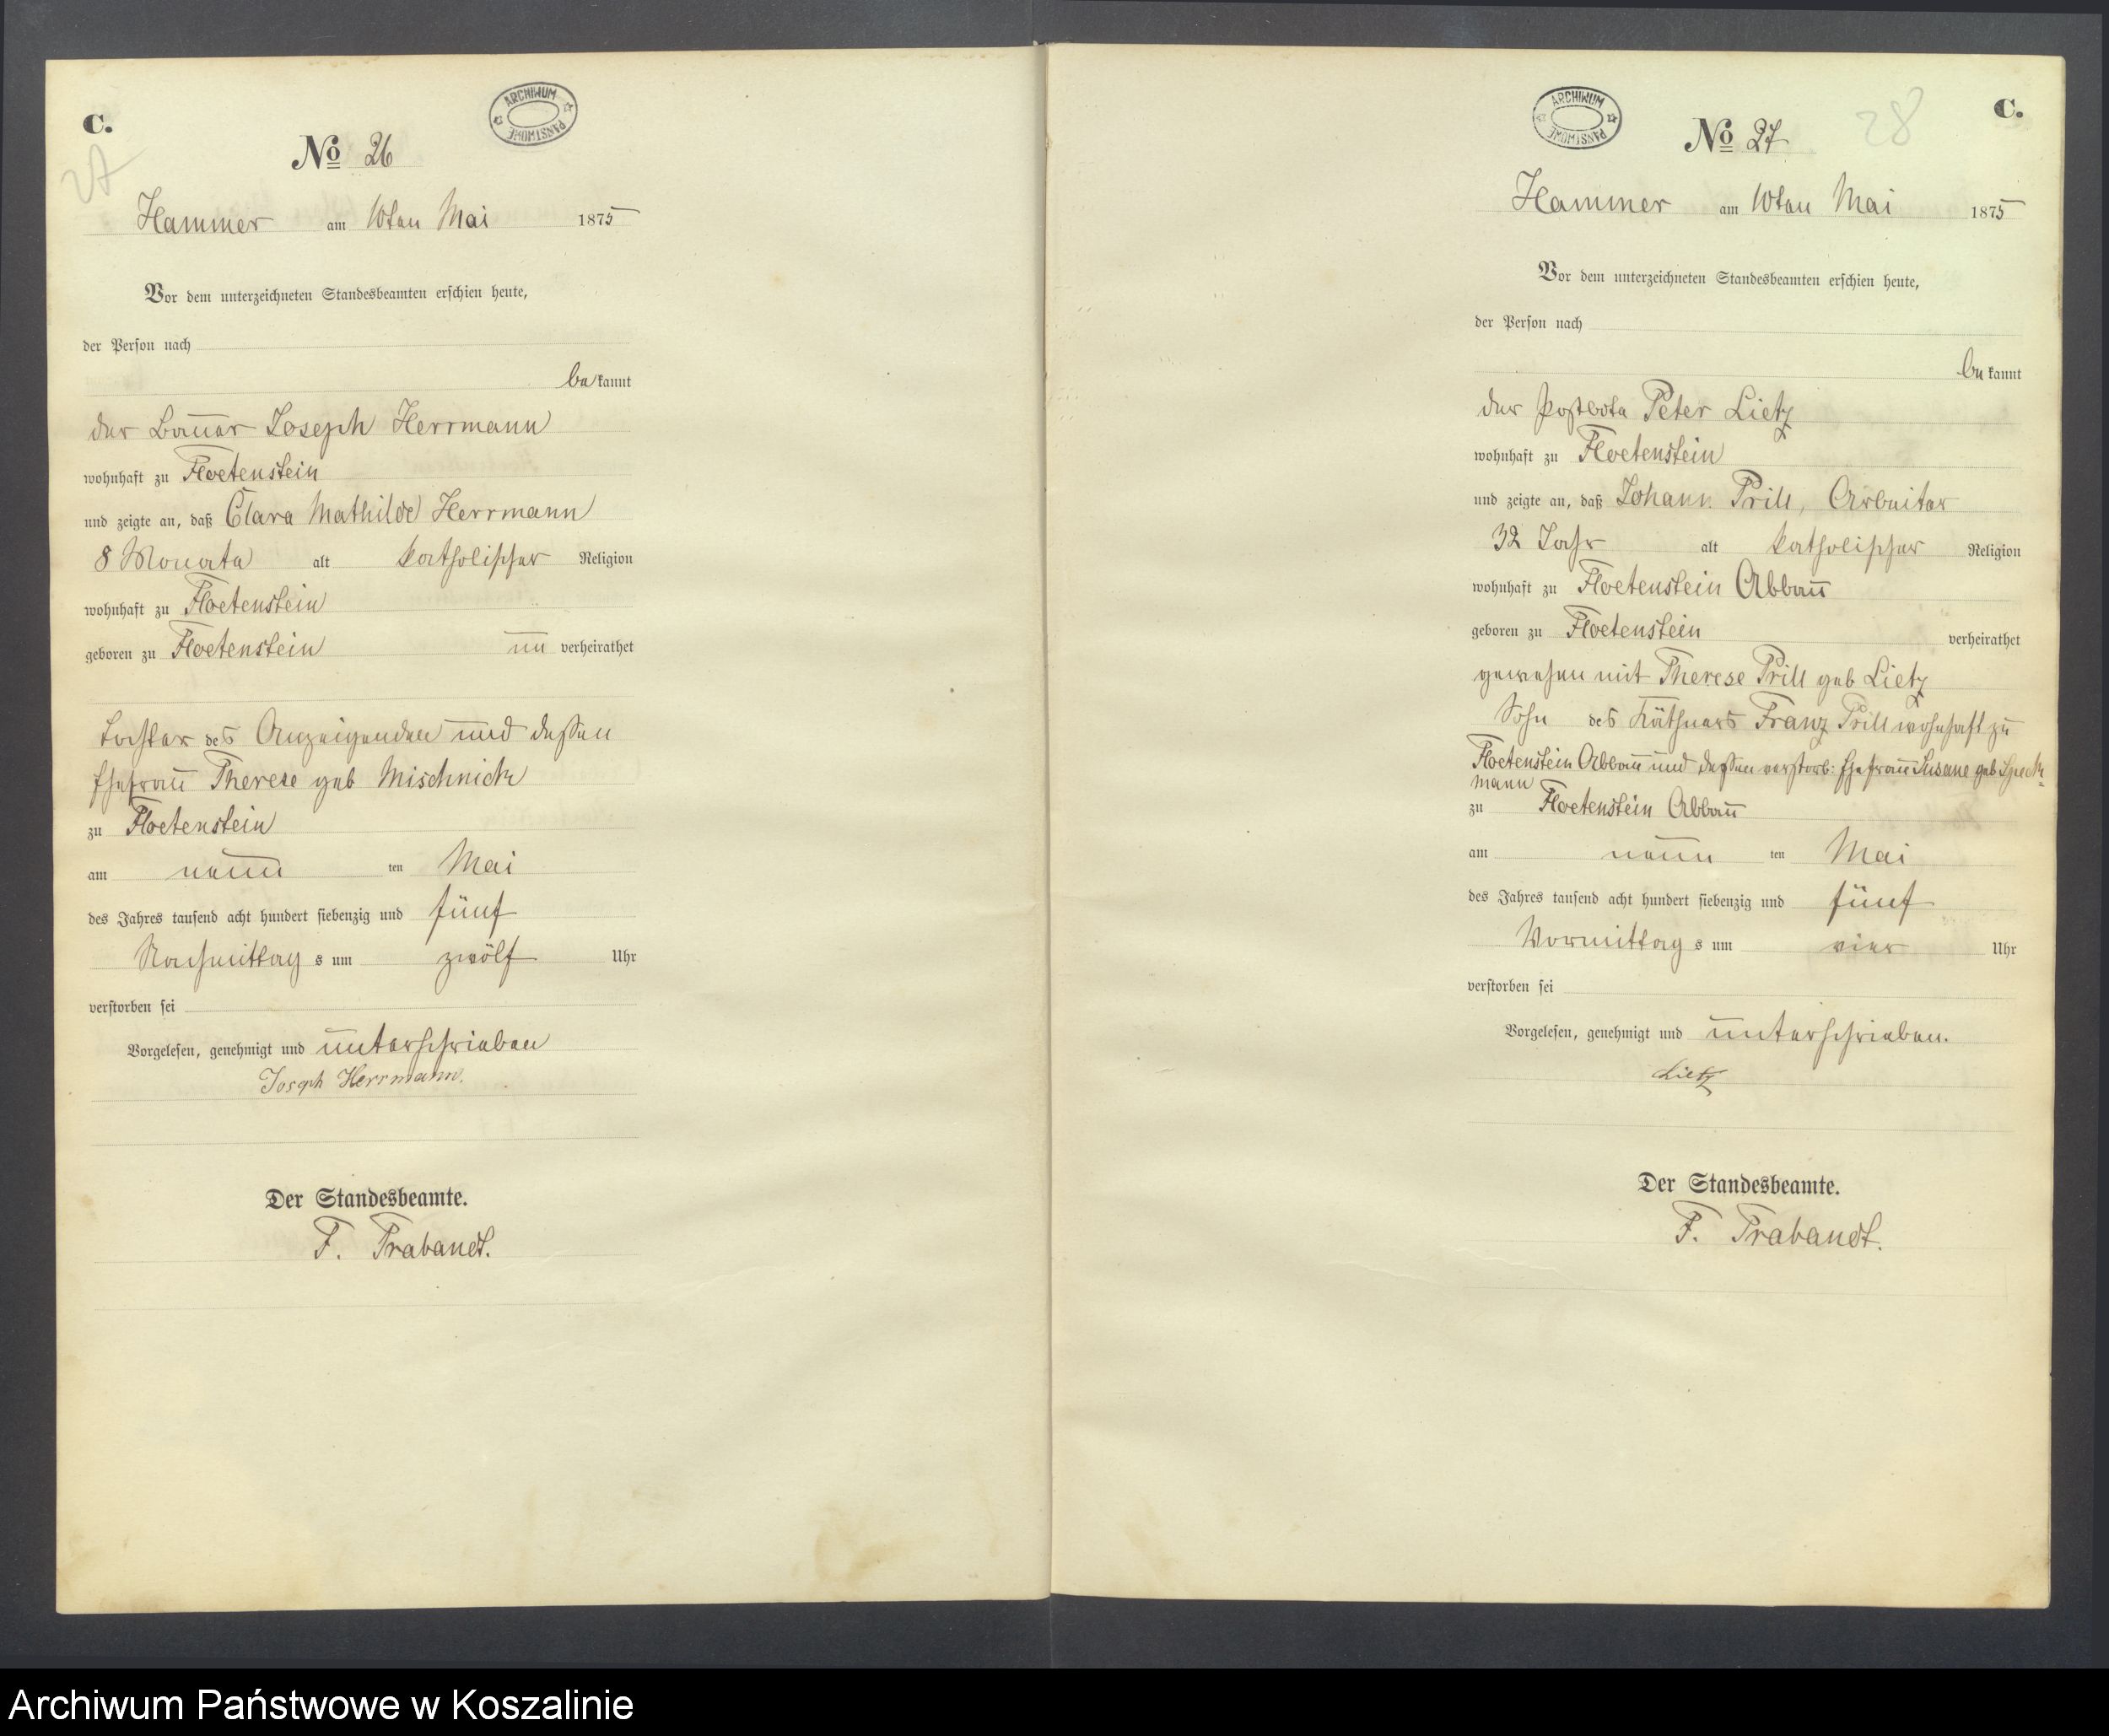 C.
27
ARCHIWUM PAŃSTWOWE
No 26
Hammer am 10ten Mai 1875
Vor dem unterzeichneten Standesbeamten erschien heute,
der Person nach
bekannt
der Bauer Joseph Herrmann
wohnhaft zu Floetenstein
und zeigte an, daß Clara Mathilde Herrmann
8 Monate alt katholischer Religion
wohnhaft zu Floetenstein
geboren zu Floetenstein un verheirathet
Tochter des Anzeigenden und dessen
Ehefrau Therese geb Mischnick
zu Floetenstein
am neun ten Mai
des Jahres tausend acht hundert siebenzig und fünf
Nachmittag s um zwölf Uhr
verstorben sei
Vorgelesen, genehmigt und unterschrieben
Joseph Herrmann.
Der Standesbeamte.
F. Prabandt.
C.
28
ARCHIWUM PAŃSTWOWE
No 27
Hammer am 10ten Mai 1875
Vor dem unterzeichneten Standesbeamten erschien heute,
der Person nach
bekannt
der Postbote Peter Lietz
wohnhaft zu Floetenstein
und zeigte an, daß Johann Prill, Arbeiter
32 Jahr alt katholischer Religion
wohnhaft zu Floetenstein Abbau
geboren zu Floetenstein verheirathet
gewesen mit Therese Prill geb Lietz
Sohn des Käthners Franz Prill wohnhaft zu
Floetenstein Abbau und dessen verstorb: Ehefrau Susane geb Speck-
mann
zu Floetenstein Abbau
am neun ten Mai
des Jahres tausend acht hundert siebenzig und fünf
Vormittag s um vier Uhr
verstorben sei
Vorgelesen, genehmigt und unterschrieben.
Lietz
Der Standesbeamte.
F. Prabandt.
Archiwum Państwowe w Koszalinie